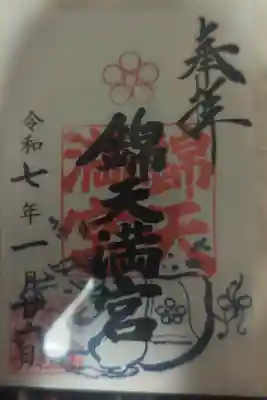 奉拝
錦天満宮
錦天
満宮
令和七年一月廿一日